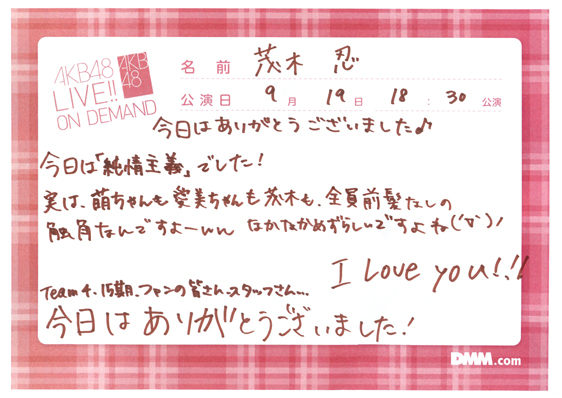 AKB48
LIVE!!
ON DEMAND
AKB
48
名前 茂木 忍
公演日 9月 19日 18:30 公演
今日はありがとうございました♪
今日は「純情主義」でした!
実は、萌ちゃんも愛美ちゃんも茂木も、全員前髪なしの
触角なんですよーww なかなかめずらしいですよね('∇')!
I Love you!!!
Team4、15期、ファンの皆さん、スタッフさん...
今日はありがとうございました!
DMM.com